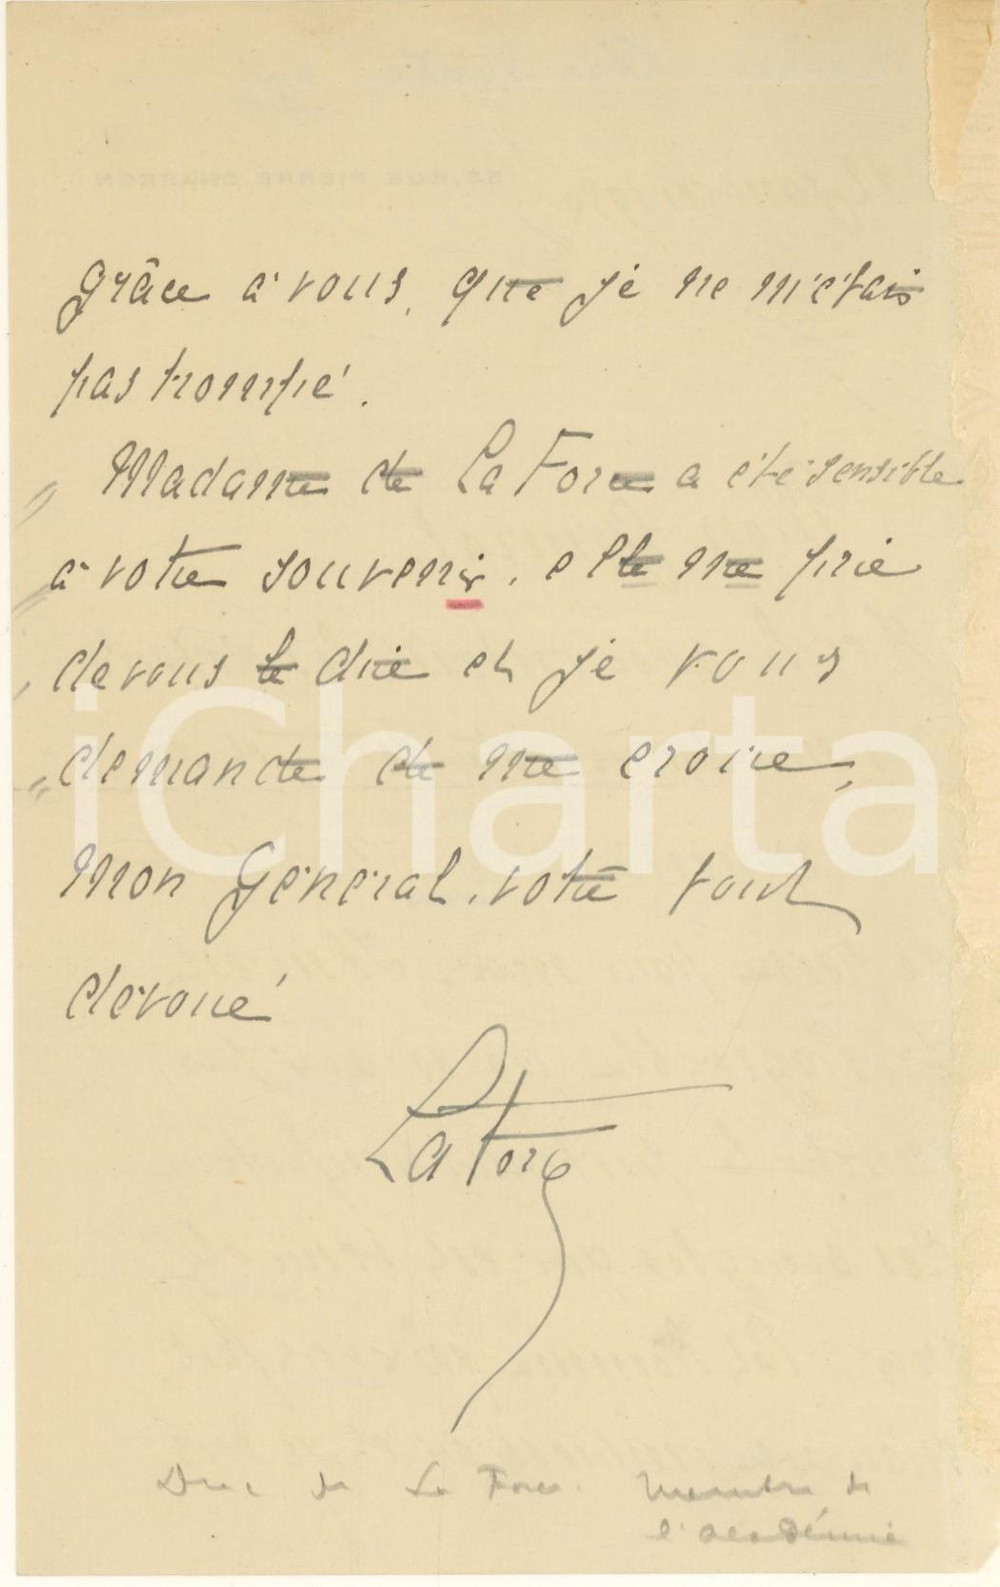 grâce à vous, que je ne m'étais
pas trompé.
Madame de La Force a été sensible
à votre souvenir. elle me prie
de vous le dire et je vous
demande de me croire,
Mon Général, votre tout
dévoué
La Force
Duc de La Force. Membre de
l'Académie
iCharta